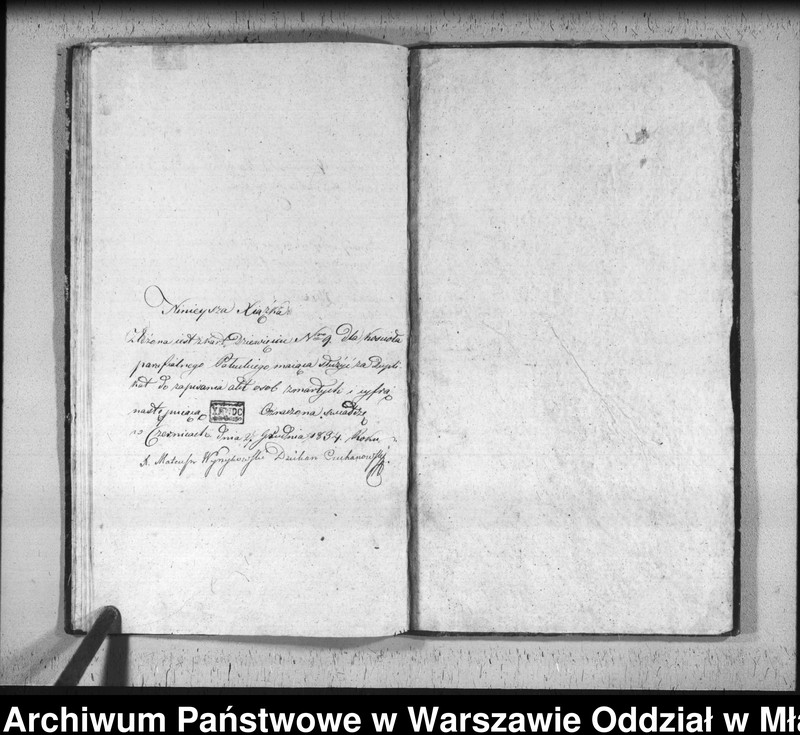 Ninieysza Xiązka
złożona ust z kart Dziewięciu Nro 9. dla Kościoła
parafialnego Pałuckiego maiąca służyć za Dupli
kat do zapisania akt osob zmarłych i cyfrą
następuiącą Oznaczona świadczę
w Czernicach dnia Grudnia 1834. Roku
X. Mateusz Wyrzykowski Dziekan Ciechanowski
Archiwum Państwowe w Warszawie Oddział w Mła